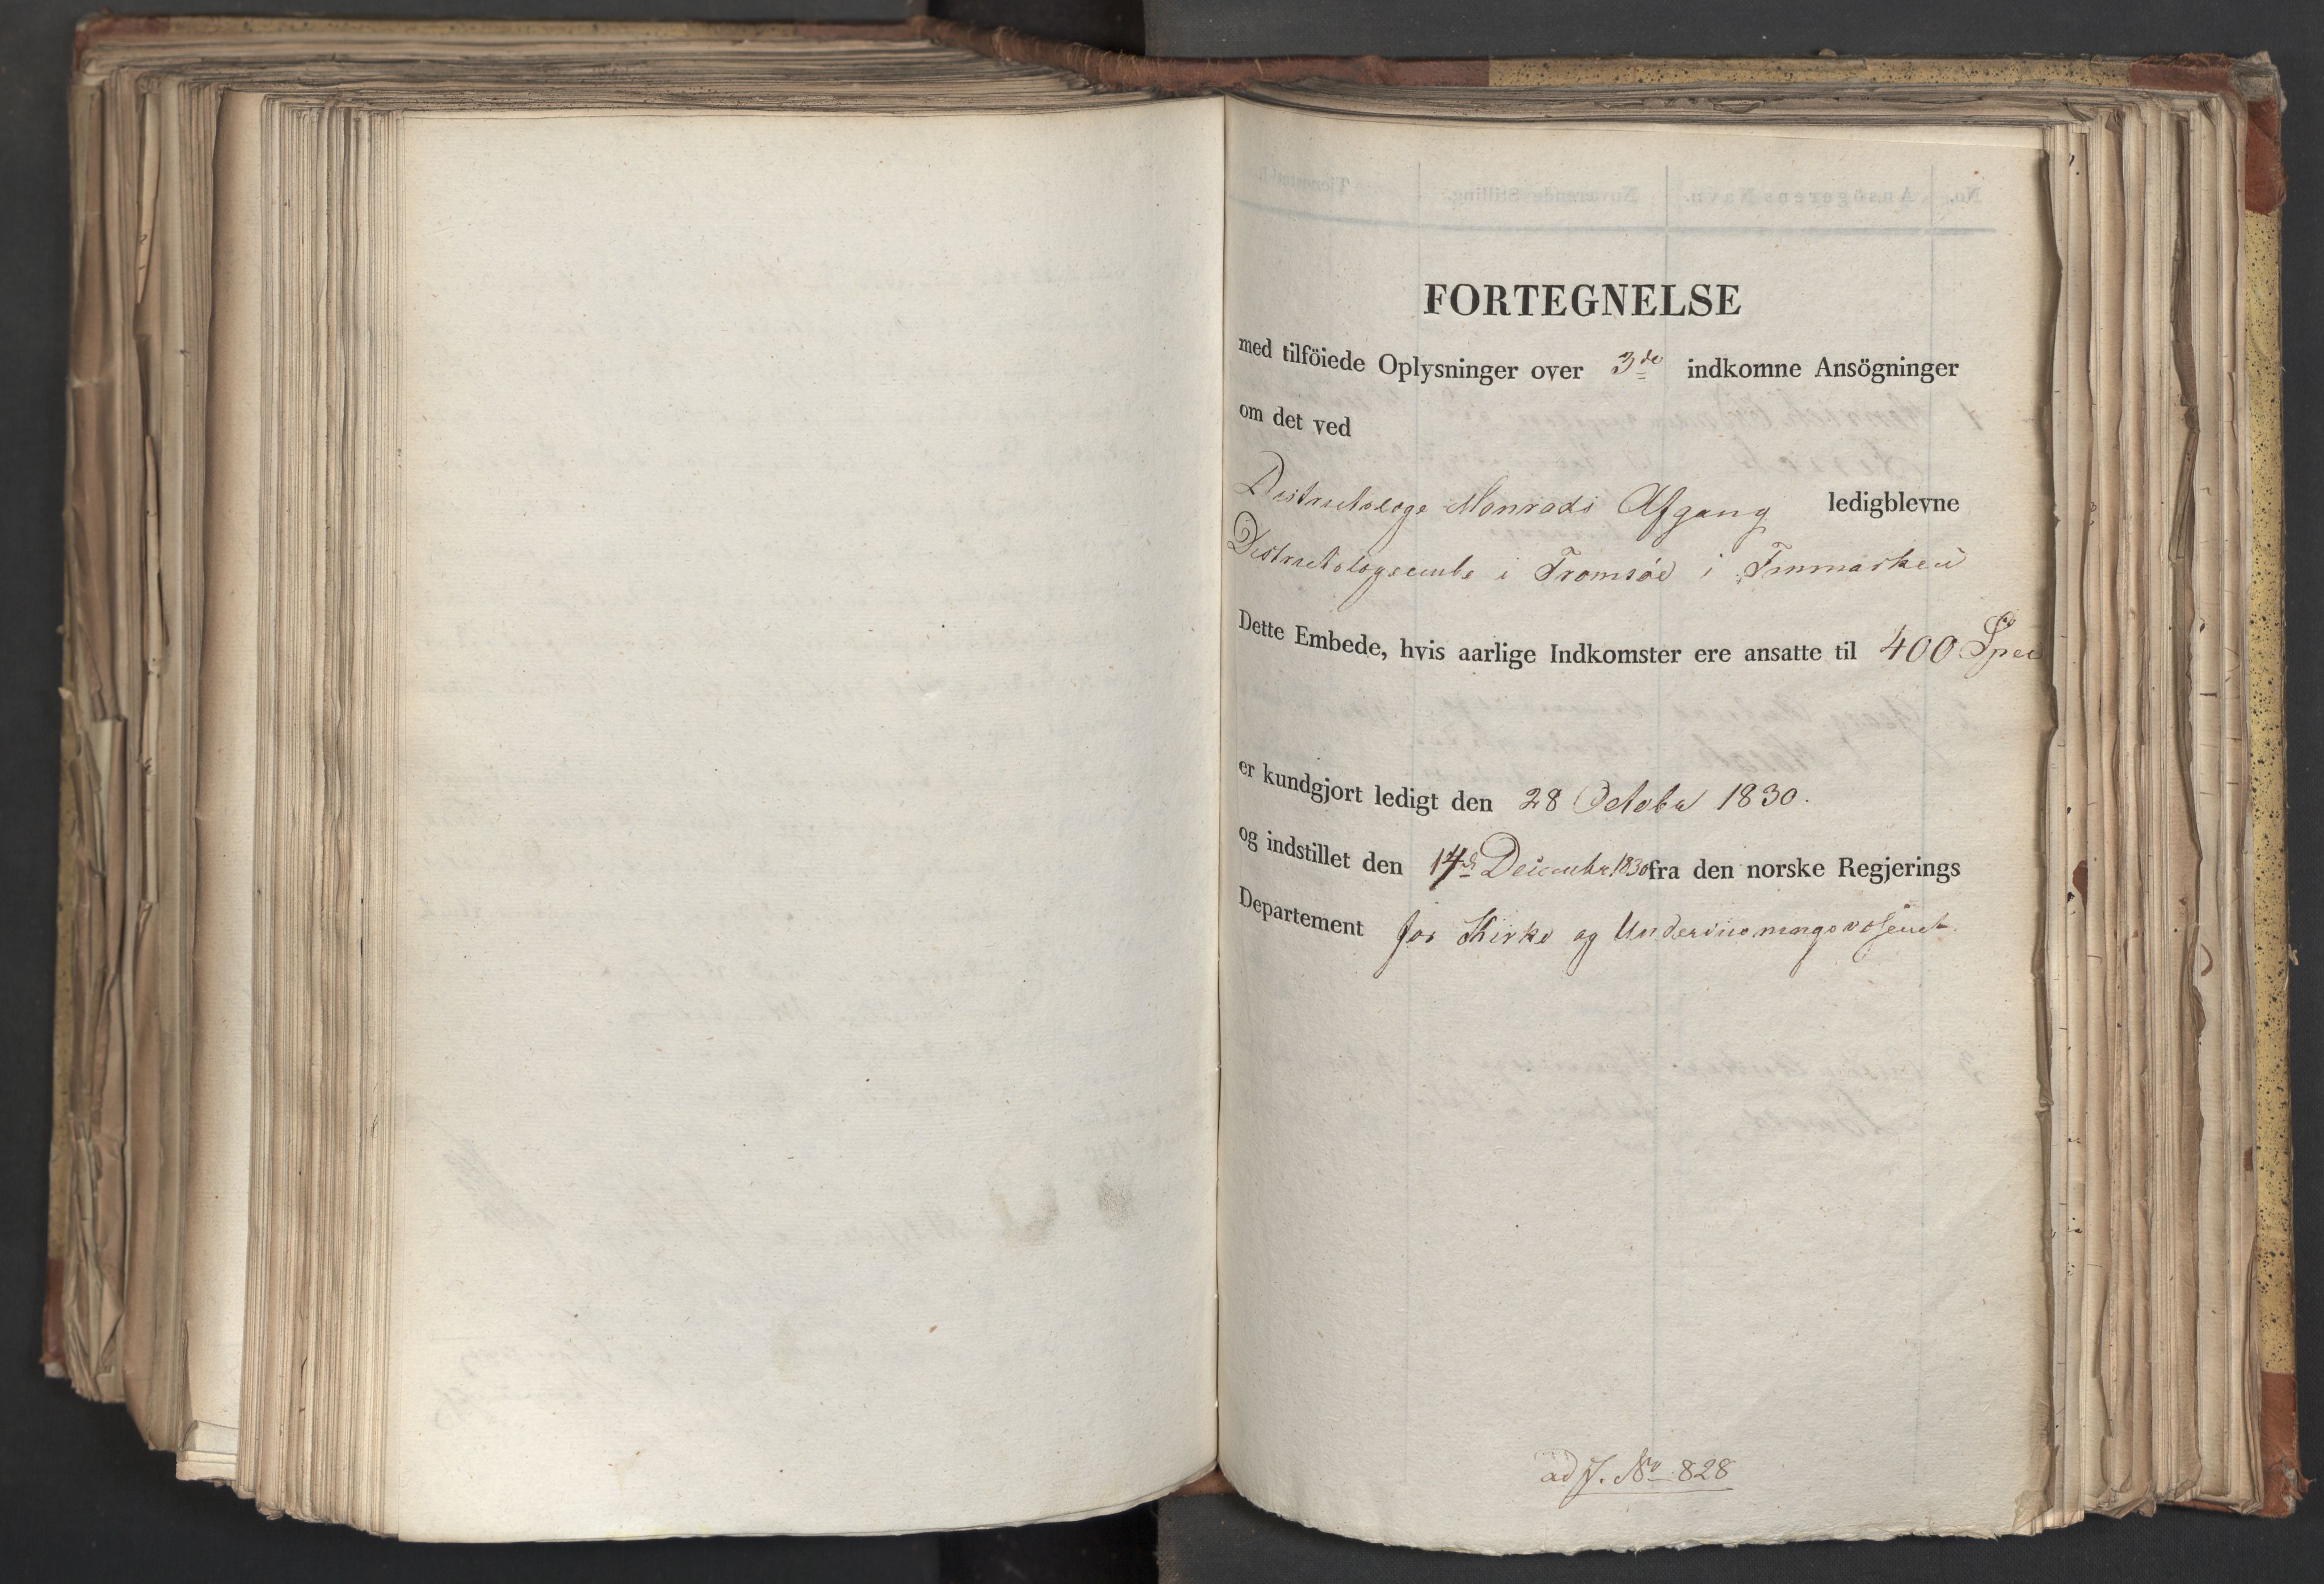 FORTEGNELSE
med tilföiede Oplysninger over 3de indkomne Ansögninger
om det ved
Districtslæge Monrads Afgang ledigblevne
Districtslægeembe i Tromsöe i Finmarken
Dette Embede, hvis aarlige Indkomster ere ansatte til 400 Spec
er kundgjort ledigt den 28 October 1830.
og indstillet den 14de December 1830 fra den norske Regjerings
Departement for Kirke og Underviisningsvæsenet.
ad J. No 828